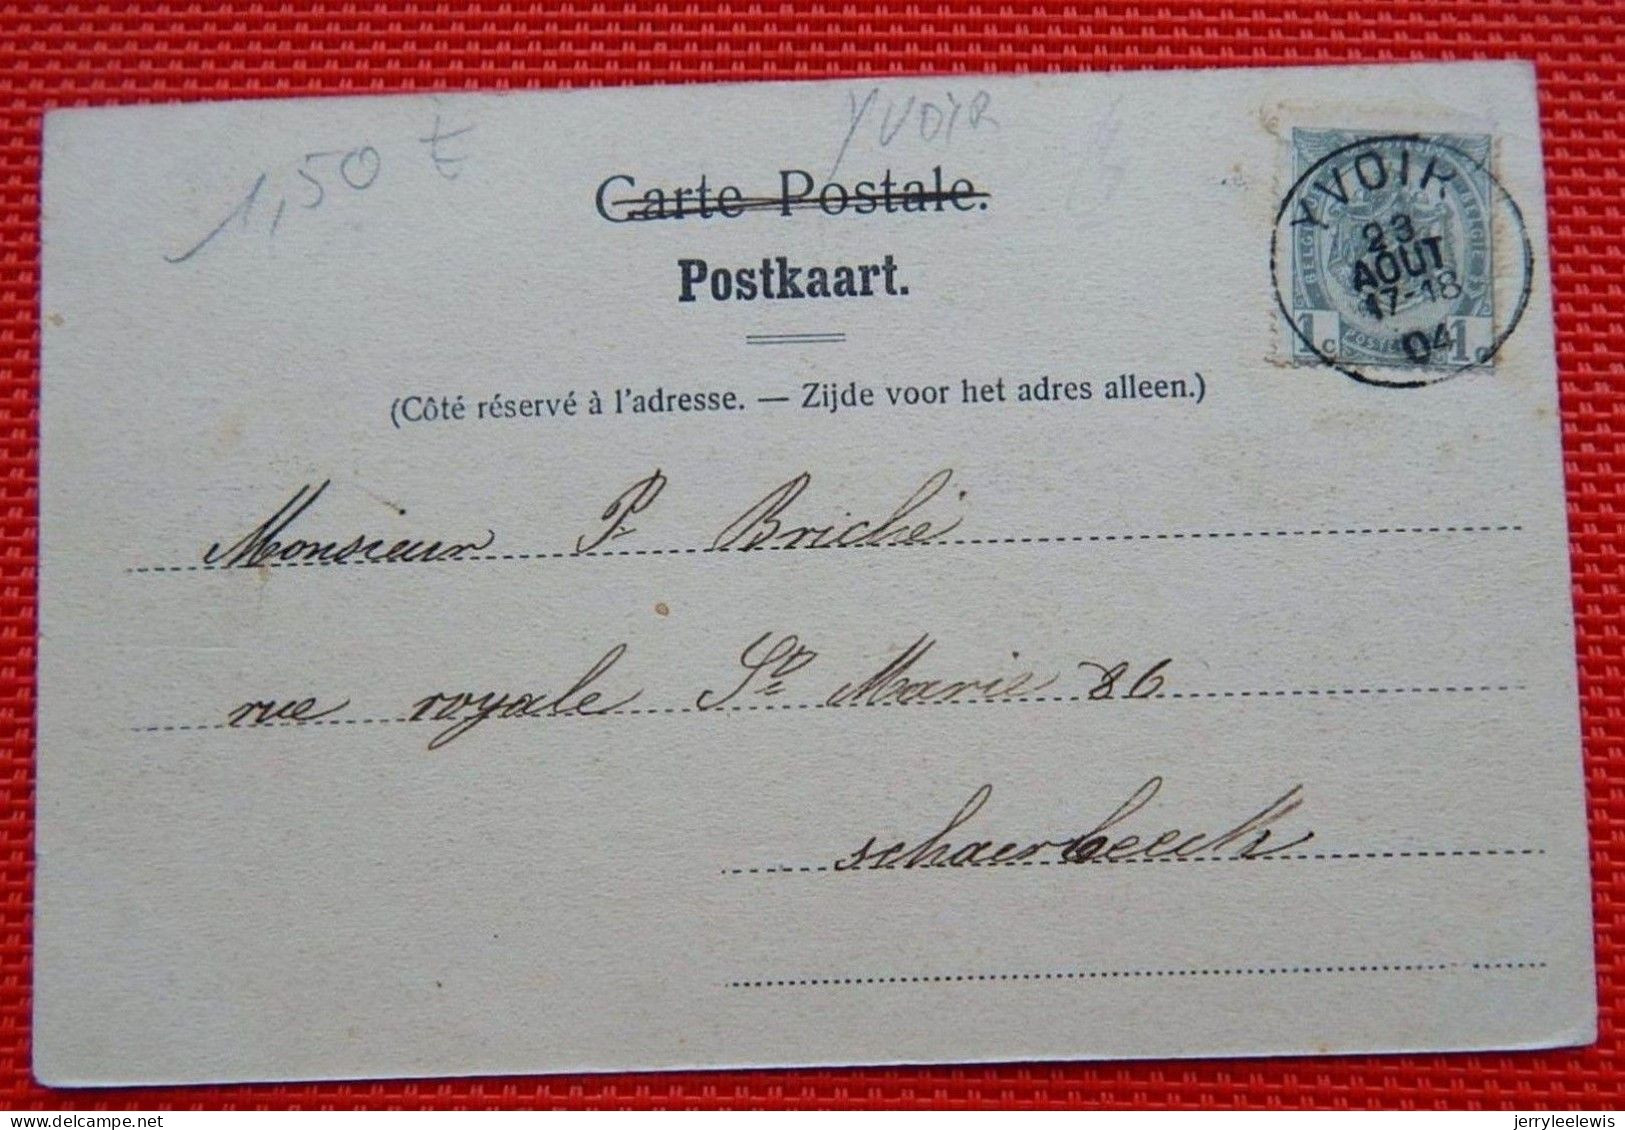 1,50 €
YVOIR
Carte Postale.
Postkaart.
(Côté réservé à l'adresse. — Zijde voor het adres alleen.)
YVOIR
23
AOUT
17-18
04
1 C 1 C
POSTE
Monsieur P. Briché
rue royale Ste Marie 86
schaerbeeck
delcampe.net
jerryleelewis